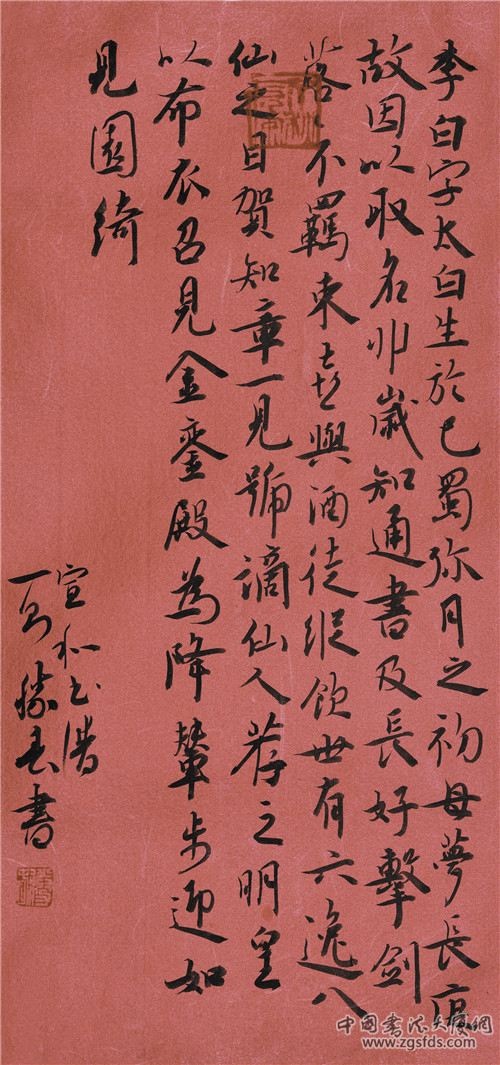 李白字太白生於巴蜀弥月之初母夢長庚
故因以取名卯歲知通書及長好擊劍
落不羈束喜與酒徒縱飲世有六逸八
仙之目賀知章一見號謫仙人荐之明皇
以布衣召見金銮殿為降輦步迎如
見園綺
宣和書譜
書
中国书法大厦网
www.zgsfds.com